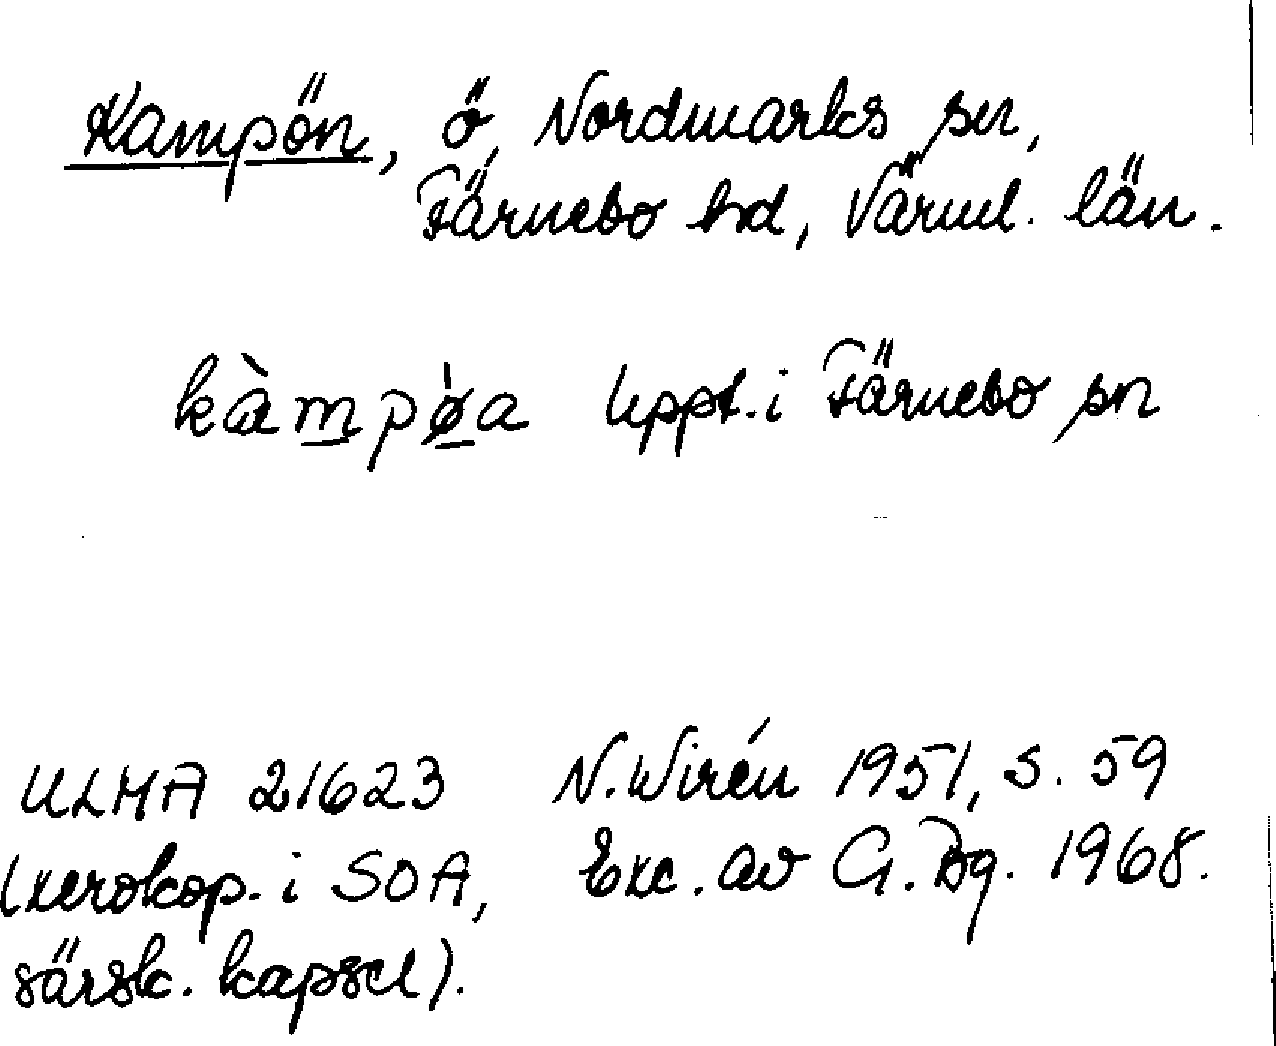 Kampön, ö, Nordmarks sn,
Färnebo hd, Värml. län.
kàmpø̀a Uppt. i Färnebo sn
ULMA 21623 N. Wirén 1951, s. 59
(xerokop. i SOA, Exc. av G. Bg. 1968.
särsk. kapsel).